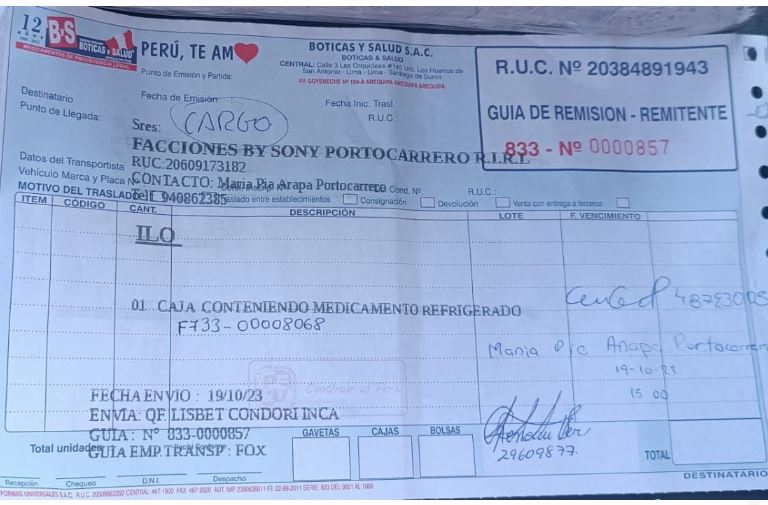 12
B·S
BOTICAS y SALUD
MEDICAMENTOS DE PROCEDENCIA LEGAL
PERÚ, TE AM
Punto de Emisión y Partida:
BOTICAS Y SALUD S.A.C.
BOTICAS & SALUD
CENTRAL: Calle 3 Las Orquídeas # 145 Urb. Los Huertos de
San Antonio - Lima - Lima - Santiago de Surco
AV. GOYENECHE Nº 109-A AREQUIPA AREQUIPA AREQUIPA
R.U.C. Nº 20384891943
GUIA DE REMISION - REMITENTE
833 - Nº 0000857
Destinatario :
Punto de Llegada:
Fecha de Emisión :
Fecha Inic. Trasl.:
R.U.C.:
Sres:
CARGO
FACCIONES BY SONY PORTOCARRERO R.I.R.L
Datos del Transportista RUC:20609173182
Vehículo Marca y Placa Nº CONTACTO: Maria Pia Arapa Portocarrero Cond. Nº: R.U.C.:
MOTIVO DEL TRASLADO Telf 940862385 Traslado entre establecimientos Consignación Devolución Venta con entrega a terceros
ITEM CÓDIGO CANT. DESCRIPCIÓN LOTE F. VENCIMIENTO
ILO
01 CAJA CONTENIENDO MEDICAMENTO REFRIGERADO
F733-00008068
Maria Pia Arapa Portocarrero
19-10-23
15:00
FECHA ENVIO : 19/10/23
ENVIA: QF LISBET CONDORI INCA
GUIA : Nº 833-0000857
Total unidades GUIA EMP.TRANSP : FOX
GAVETAS CAJAS BOLSAS
29609877.
TOTAL
Recepción Chequeo D.N.I. Despacho
DESTINATARIO